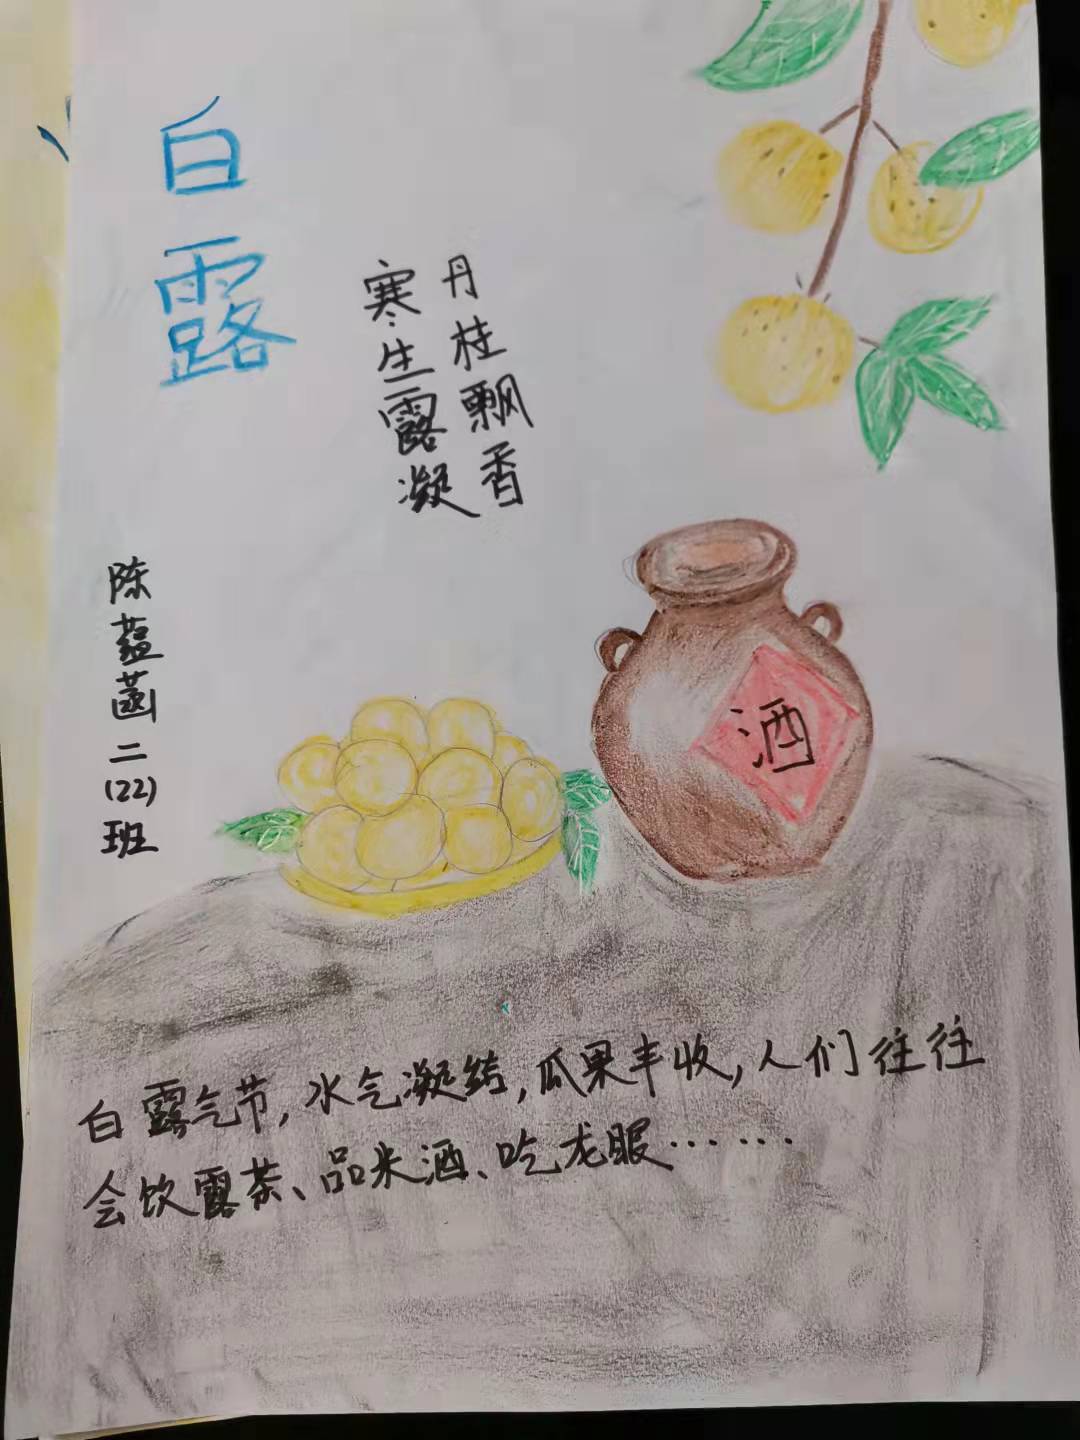 白露
丹桂飘香
寒生露凝
陈蕴菡二(22)班
酒
白露气节,水气凝结,瓜果丰收,人们往往
会饮露茶、品米酒、吃龙眼……